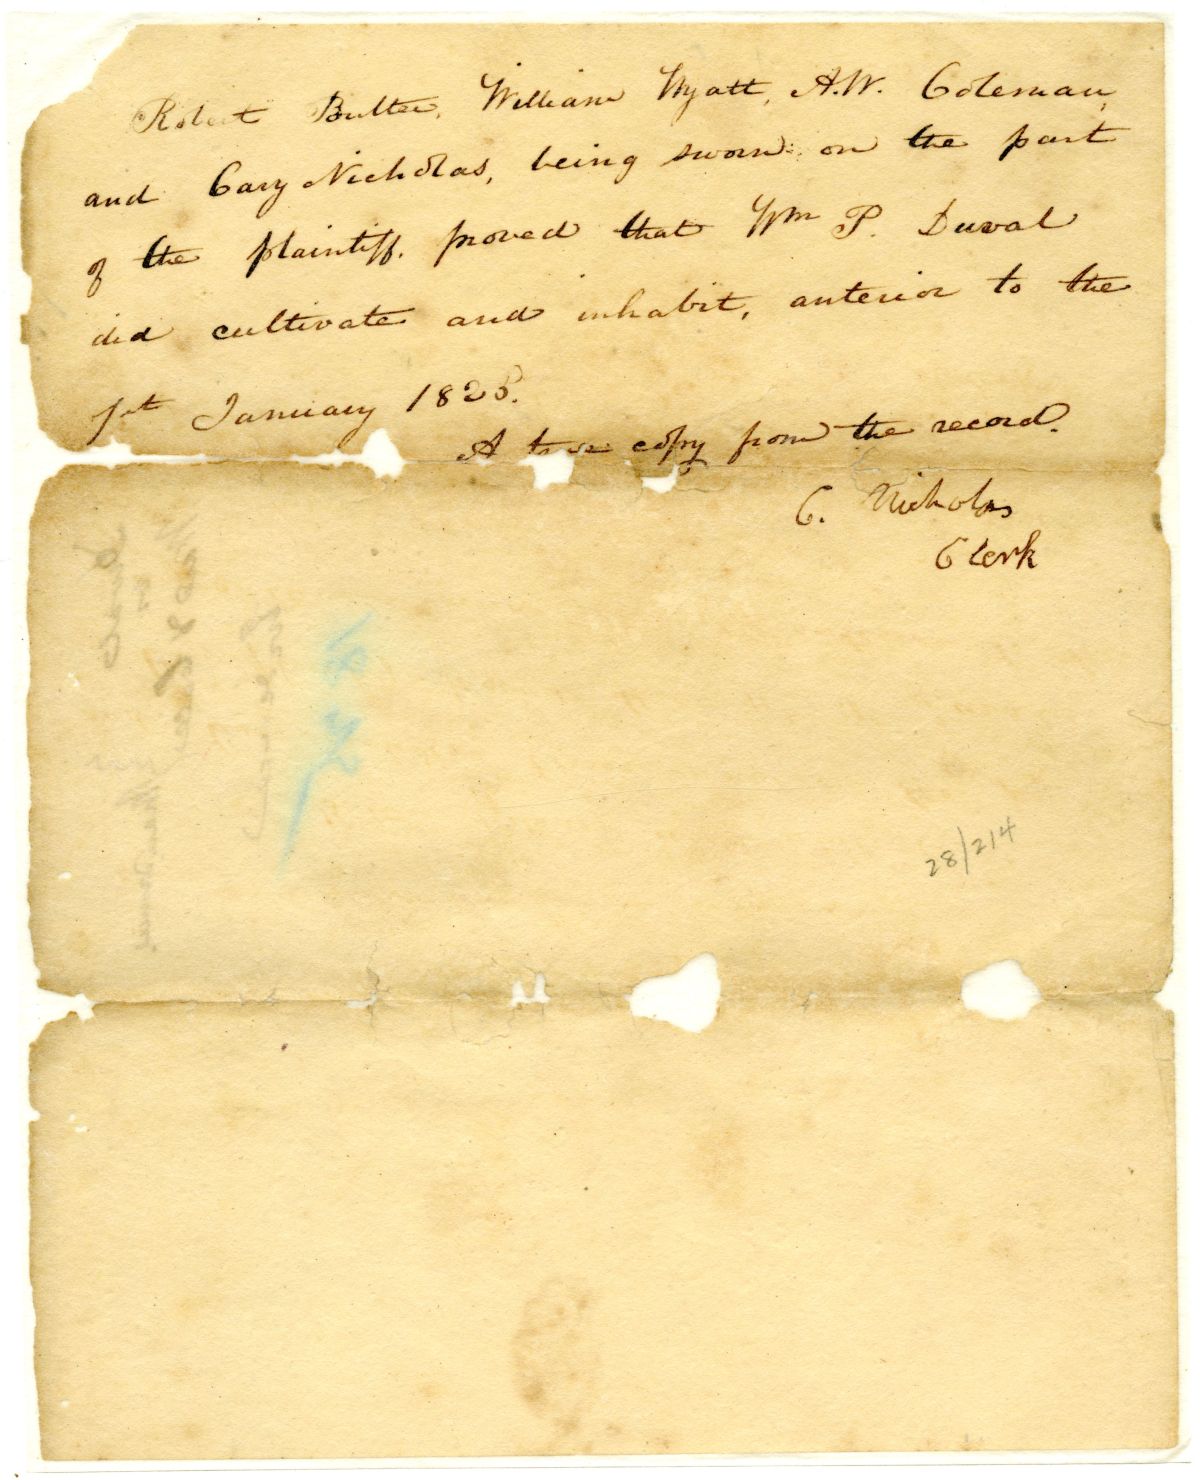 Robert Butler, William Wyatt, A.W. Coleman,
and Cary Nicholas, being sworn on the part
of the plaintiff. proved that Wm P. Duval
did cultivate and inhabit, anterior to the
1st January 1825.
A true copy from the record.
C. Nicholas
Clerk
28/214